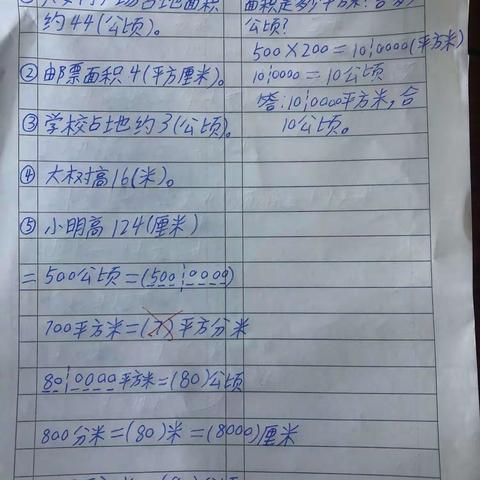 场占地面积
约44(公顷)。
②邮票面积4(平方厘米)。
③学校占地约3(公顷)。
④大树高16(米)。
⑤小明高124(厘米)
二 500公顷=(500¦0000)
700平方米=( )平方分米
80¦0000平方米=(80)公顷
800分米=(80)米=(8000)厘米
面积是多少平方米?合多少
公顷?
500×200=10¦0000(平方米)
10¦0000=10公顷
答:10¦0000平方米,合
10公顷。